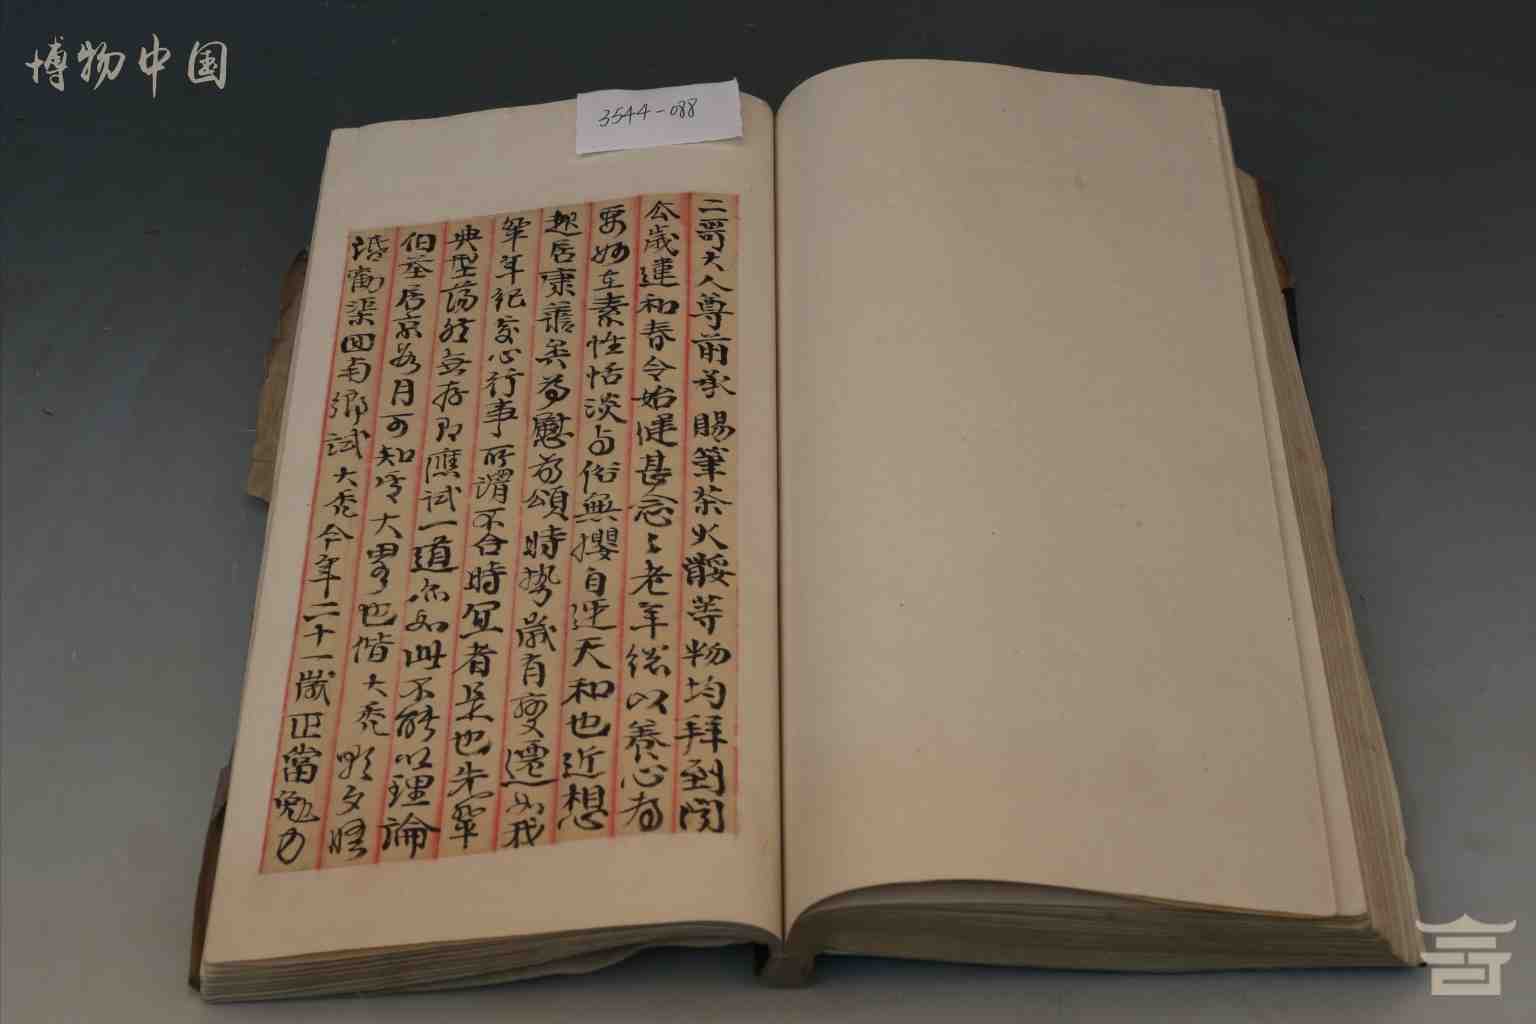 博物中国
3544-088
二哥大人尊前承賜筆茶火骽等物均拜到閱
公歲運和春令始健甚念〻老年總以養心為
要妙在素性恬淡与俗無攖自迓天和也近想
起居康護矣為慰為頌時势嵗有變遷如我
輩年紀交心行事所謂不合時宜者是也先輩
典型蕩然無存即應試一道亦如此不能以理論
伯荃居京数月可知其大畧也偕大
婚勸渠回南鄉試大秃今年二十一嵗正當勉力